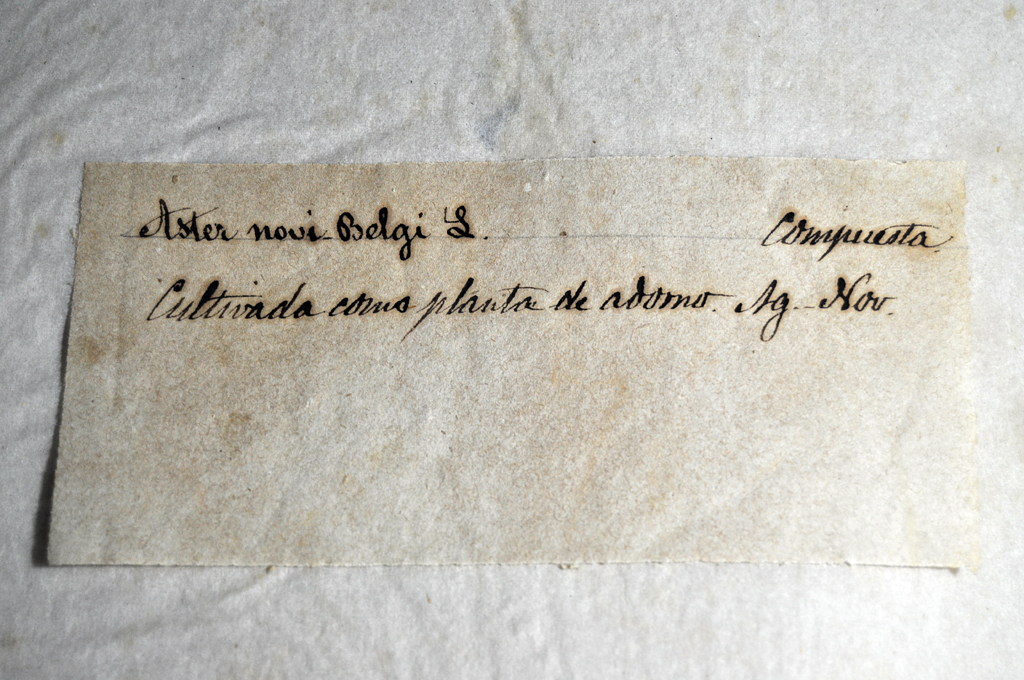 Aster novi-Belgi L. Compuesta
Cultivada como planta de adorno. Ag.-Nov.